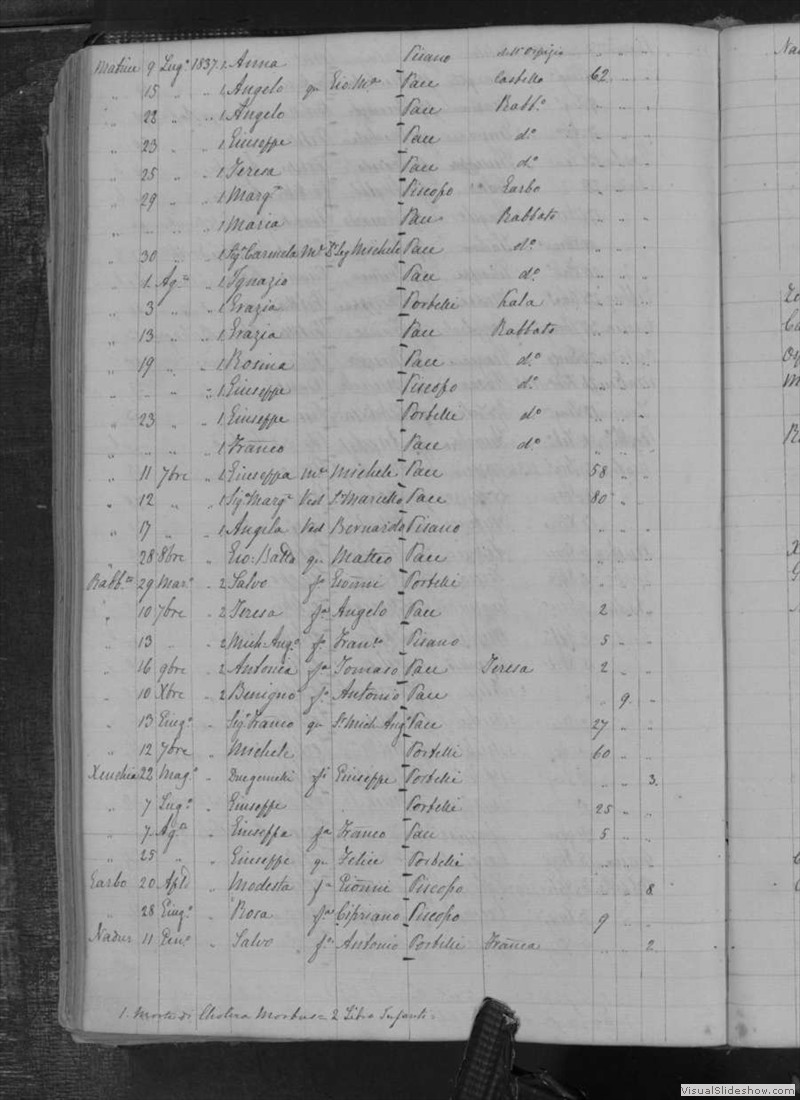 Matrice 9 Lugo 1837 1 Anna Pisano dell'Ospizio " "
" 15 " " 1 Angelo qm Gio Ma Pace Castello 62 " "
" 22 " " 1 Angelo Pace Rabbo " " "
" 23 " " 1 Giuseppe Pace do " " "
" 25 " " 1 Teresa Pace do " " "
" 29 " " 1 Margta Piscopo Garbo " " "
" " " " 1 Maria Pace Rabbato " " "
" 30 " " 1 Siga Carmela Me Dr Sig Michele Pace do " " "
" 1 Ago " 1 Ignazio Pace do " " "
" 3 " " 1 Grazia Portelli Kala " " "
" 13 " " 1 Grazia Pace Rabbato " " "
" 19 " " 1 Rosina Pace do " " "
" " " " 1 Giuseppe Piscopo do " " "
" 23 " " 1 Giuseppe Portelli do " " "
" " " " 1 Franco Pace do " " "
" 11 7bre " 1 Giuseppa Me Michele Pace 58 " "
" 12 " " 1 Siga Marga Ved Pace 80 " "
" 17 " " 1 Angela Ved Bernardo Pisano
" 28 8bre " Gio: Batta qm Matteo Pace " " "
Rabbto 29 Mar. " 2 Salvo fo Gionni Portelli " " "
" 10 7bre " 2 Teresa fa Angelo Pace 2 " "
" 13 " " 2 Mich Ango fo Franco Pisano 5 " "
" 16 9bre " 2 Antonia fa Tomaso Pace Teresa 2 " "
" 10 Xbre " 2 Benigno fo Antonio Pace " 9 "
" 13 Giugo " Sigr Franco qm Sr Mich Ango Pace 27 " "
" 12 7bre " Michele Portelli 60 " "
Xeuchia 22 Mago " fi Giuseppe Portelli " " 3
" 7 Lugo " Giuseppe Portelli 25 " "
" 7 Ago " Giuseppa fa Franco Pace 5 " "
" 25 " " Giuseppe qm Felice Portelli " " "
Garbo 20 Aple " Modesta fa Gionni Piscopo " " 8
" 28 Giugo " Rosa fa Cipriano Piscopo 9 " "
Nadur 11 Geno " Salvo fo Antonio Portelli Franca " " 2
1. Morti di Cholera Morbus = 2 Libro Infanti =
Na
R
X
VisualSlideshow.com